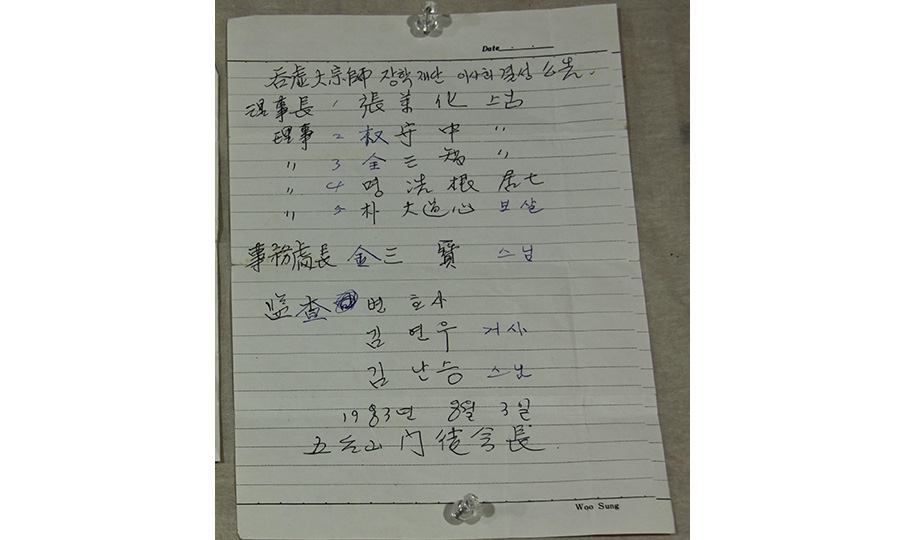 Date
呑虛大宗師 장학재단 이사회 결성 公告.
理事長 1 張萬化 스님
理事 2 权守中 〃
〃 3 金三智 〃
〃 4 明浩根 居士
〃 5 朴大道心 보살
事務處長 金三寶 스님
監査 변호사
김연우 거사
김난승 스님
1983年 8월 3일
五台山 门徒会長
Woo Sung